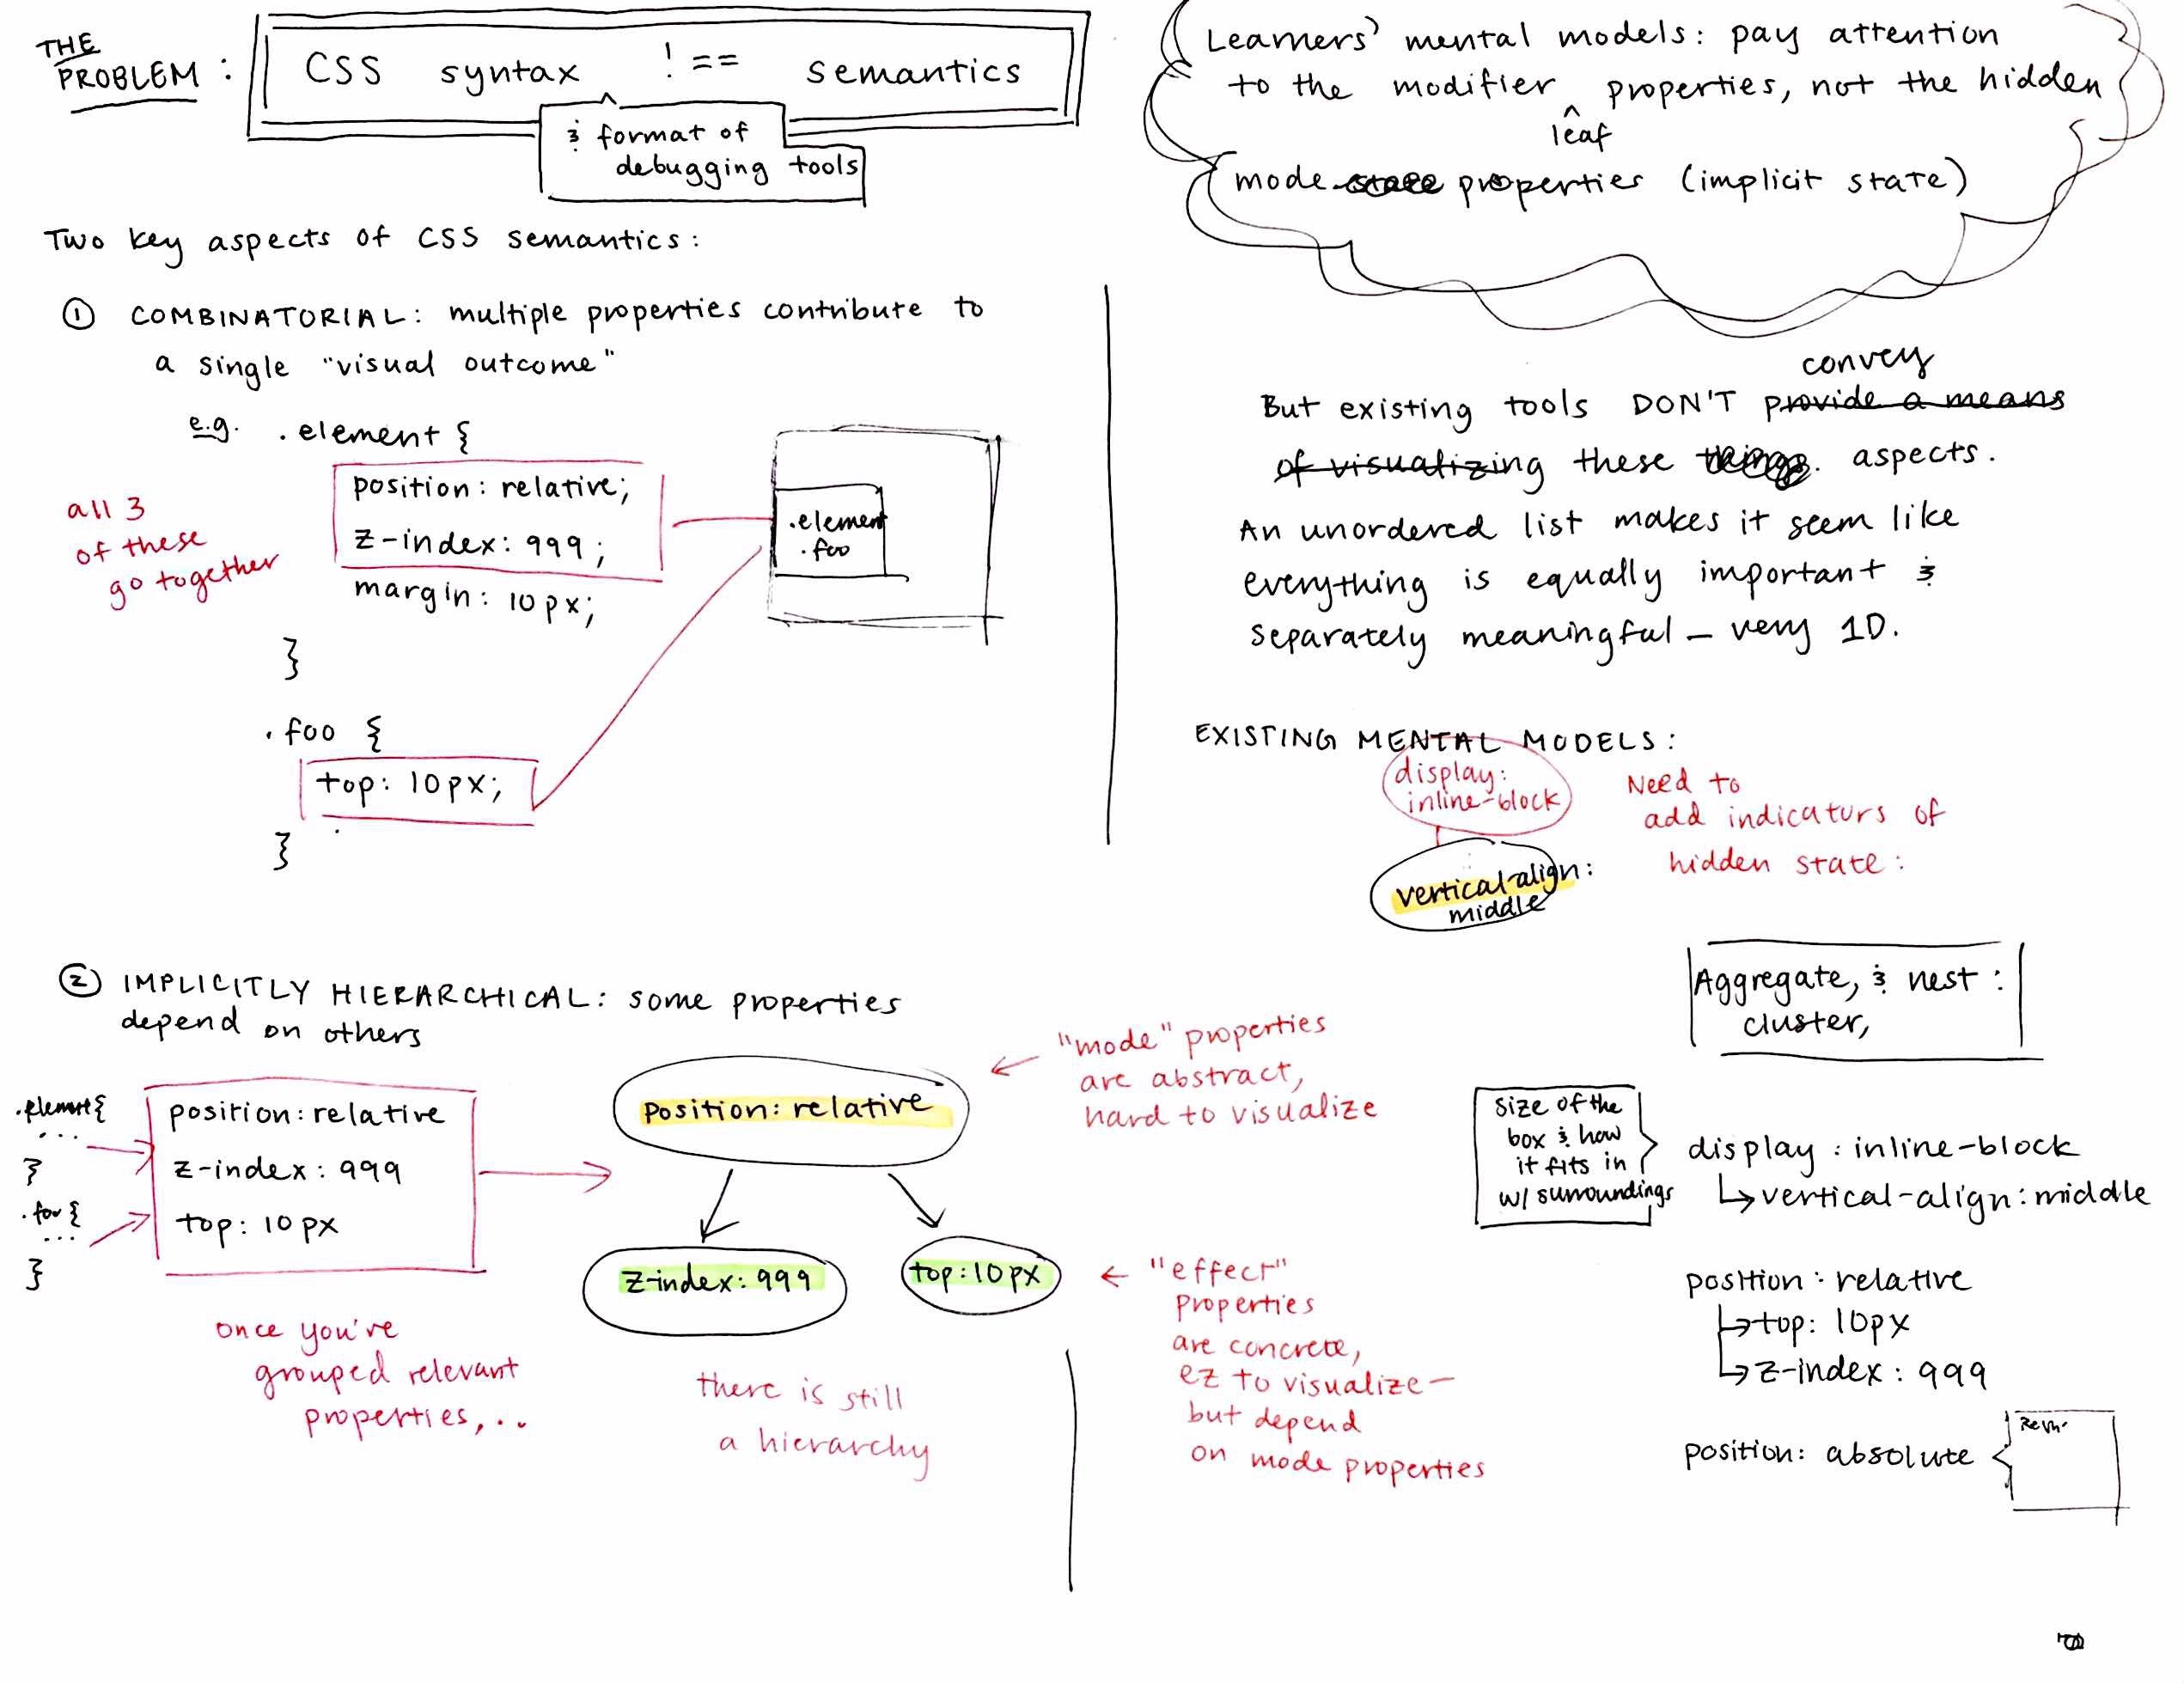 THE
PROBLEM:
CSS syntax !== semantics
& format of
debugging tools
Two key aspects of CSS semantics:
① COMBINATORIAL: multiple properties contribute to
a single "visual outcome"
e.g. .element {
position: relative;
z-index: 999;
margin: 10px;
}
all 3
of these
go together
.foo {
top: 10px;
}
.element
.foo
② IMPLICITLY HIERARCHICAL: some properties
depend on others
.element {
...
}
.foo {
...
}
position: relative
z-index: 999
top: 10px
once you're
grouped relevant
properties,...
position: relative
z-index: 999
top: 10px
there is still
a hierarchy
"mode" properties
are abstract,
hard to visualize
"effect"
properties
are concrete,
ez to visualize—
but depend
on mode properties
Learners' mental models: pay attention
to the modifier properties, not the hidden
leaf
mode properties (implicit state)
convey
But existing tools DON'T provide a means
of visualizing these things. aspects.
An unordered list makes it seem like
everything is equally important &
separately meaningful – very 1D.
EXISTING MENTAL MODELS:
display:
inline-block
vertical-align:
middle
Need to
add indicators of
hidden state:
Aggregate, & nest:
cluster,
size of the
box & how
it fits in
w/ surroundings
display: inline-block
↳ vertical-align: middle
position: relative
↳ top: 10px
↳ z-index: 999
position: absolute